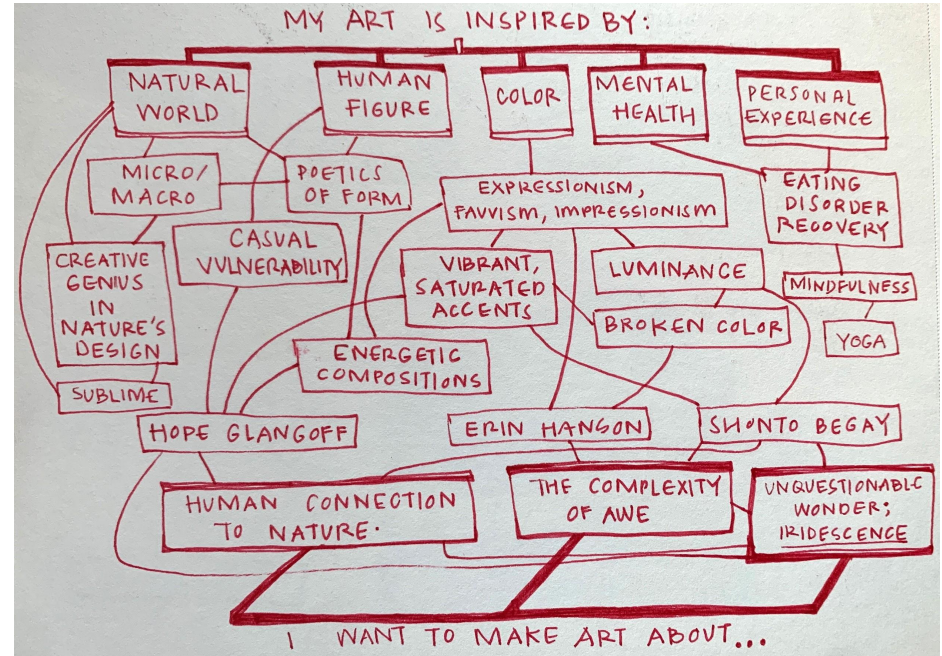 MY ART IS INSPIRED BY:
NATURAL
WORLD
HUMAN
FIGURE
COLOR
MENTAL
HEALTH
PERSONAL
EXPERIENCE
MICRO/
MACRO
POETICS
OF FORM
EXPRESSIONISM,
FAUVISM, IMPRESSIONISM
EATING
DISORDER
RECOVERY
CREATIVE
GENIUS
IN
NATURE'S
DESIGN
CASUAL
VULNERABILITY
VIBRANT,
SATURATED
ACCENTS
LUMINANCE
MINDFULNESS
BROKEN COLOR
YOGA
ENERGETIC
COMPOSITIONS
SUBLIME
HOPE GLANGOFF
ERIN HANSON
SHONTO BEGAY
HUMAN CONNECTION
TO NATURE.
THE COMPLEXITY
OF AWE
UNQUESTIONABLE
WONDER;
IRIDESCENCE
I WANT TO MAKE ART ABOUT...